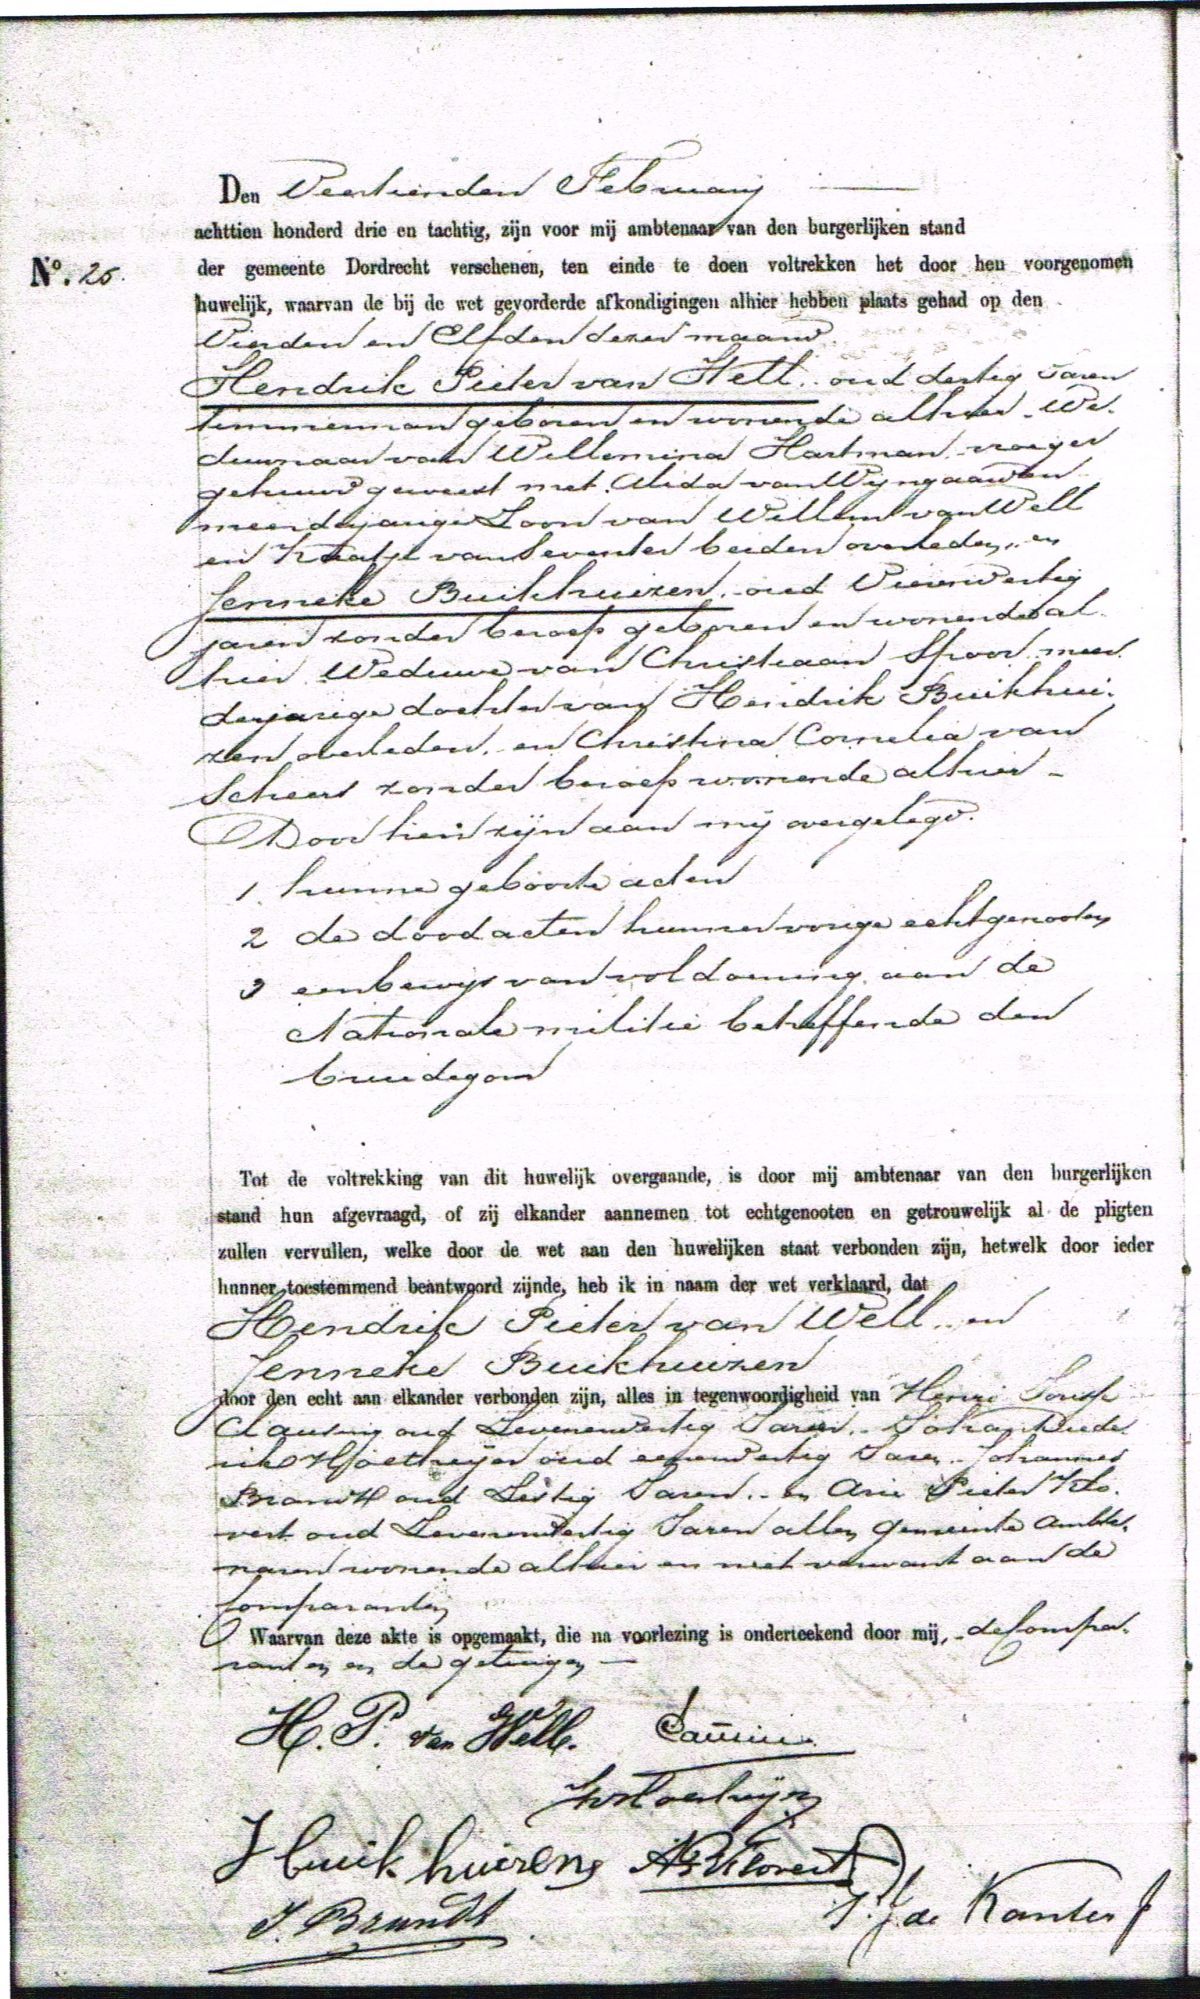 Den Veertienden Februarij
achttien honderd drie en tachtig, zijn voor mij ambtenaar van den burgerlijken stand
No. 25. der gemeente Dordrecht verschenen, ten einde te doen voltrekken het door hen voorgenomen
huwelijk, waarvan de bij de wet gevorderde afkondigingen alhier hebben plaats gehad op den
Vierden en Elfden dezer maand.
Hendrik Pieter van Well, oud dertig Jaren
timmerman geboren en wonende alhier We-
duwnaar van Willemina Hartman vroeger
gehuwd geweest met Alida van Wijngaarden
meerderjarige Zoon van Willem van Well
en Kaatje van Deventer beiden overleden, en
Jenneke Buikhuizen, oud Vierendertig
jaren zonder beroep geboren en wonende al-
hier Weduwe van Christiaan Spoor meer-
derjarige dochter van Hendrik Buikhui-
zen overleden, en Christina Cornelia van
Scheers zonder beroep wonende alhier -
Door hen zijn aan mij overgelegd.
1. hunne geboorte acten
2 de dood acten hunner vorige echtgenooten
3 een bewijs van voldoening aan de
Nationale militie betreffende den
bruidegom
Tot de voltrekking van dit huwelijk overgaande, is door mij ambtenaar van den burgerlijken
stand hun afgevraagd, of zij elkander aannemen tot echtgenooten en getrouwelijk al de pligten
zullen vervullen, welke door de wet aan den huwelijken staat verbonden zijn, hetwelk door ieder
hunner toestemmend beantwoord zijnde, heb ik in naam der wet verklaard, dat
Hendrik Pieter van Well, en
Jenneke Buikhuizen
door den echt aan elkander verbonden zijn, alles in tegenwoordigheid van Henri
oud Zevenendertig Jaren, Johan
oud eenendertig Jaren, Johannes
Brandt oud Zestig Jaren, en Arie Pieter Klo-
vert oud Zevenendertig Jaren allen gemeente ambte-
naren wonende alhier en niet verwant aan de
Comparanten
Waarvan deze akte is opgemaakt, die na voorlezing is onderteekend door mij, de Compa-
ranten en de getuigen
H. P. van Well.
J buikhuizens
J. Brandt
J. J. de Kanter